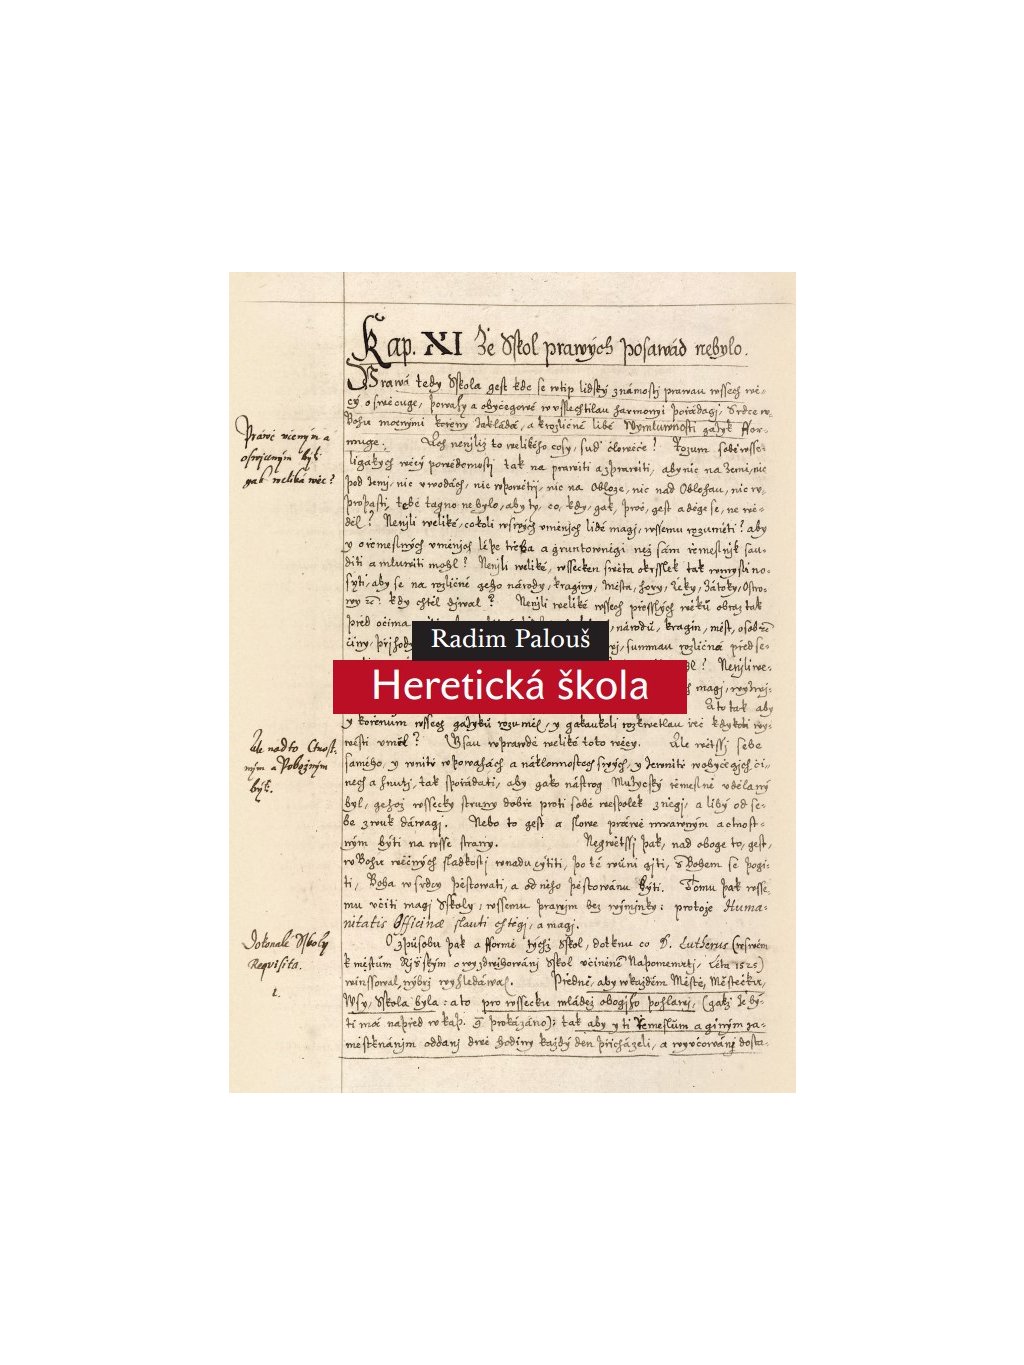 Kap. XI Že Sskol prawých posawád nebylo.
Prawá tedy Sskola gest kde se wtip lidský známostj prawau wssech wě-
cý oswěcuge, powahy a obyčegowé w vsslechtilau harmonyi pořádagj, Srdce w
Bohu mocnými kořeny zakládá, a k rozličné libé Wymluwnosti gazyk ffor-
muge.
Práwě včeným a
oswjceným býti
gak weliká wěc?
Ach nenjliž to welikého cosy, suď člowěče! Rozum sobě wsse-
ligakých wěcý powědomostj tak na prawiti a zprawiti, aby nic na Zemi, nic
pod Zemj, nic w wodách, nic w powětřj, nic na Obloze, nic nad Oblohau, nic w
propasti, tobě tagno nebylo, aby ty, co, kdy, gak, proč, gest a děge se, ne wě-
děl? Nenjli weliké, cokoli swých vměnjch lidé magj, wssemu rozuměti? aby
y o řemeslných vměnjch lépe třeba a gruntownégi než sám řemeslnjk sau-
diti a mluwiti mohl? Nenjli weliké, wssecken swěta okrsslek tak w mysli no-
syti, aby se na rozličné geho národy, kraginy, Města, hory, Řeky, Zátoky, Ostro-
wy etc. kdy chtěl djwal? Nenjli weliké wssech přesslých wěků obraz tak
před očima
národů, kragin, měst, osob etc.
činy, přjhody
summau rozličná před se-
Nenjli we-
magj,
A to tak aby
y kořenům wssech gazyků rozuměl, y gakaukoli rozkwetlau řeč kdykoli wy-
wésti vměl? Gsau w prawdě weliké toto wěcy. Ale wětssj sebe
Ale nad to Ctnost-
ným a Pobožným
býti.
samého, y wnitř w powahách a náklonnostech swých, y zewnitř w obyčegjch či-
nech a hnutj, tak spořádati, aby gako nástrog Muzycský řemeslně vdělaný
byl, gehož wssecky struny dobře proti sobě wespolek znégj, a libý od se-
be zwuk dáwagj. Nebo to gest a slowe práwě mrawným a ctnost-
ným býti na wsse strany. Negwětssj pak, nad oboge to, gest,
w Bohu wěčných sladkostj w nadu cýtiti, po té wůni gjti, s Bohem se pogi-
ti, Boha w srdcy pěstowati, a od něho pěstowánu býti. Tomu pak wsse-
mu včiti magj Sskoly, wssemu prawjm bez wýmjnky: protože Huma-
nitatis Officinæ slauti chtěgj, a magj.
Dokonalé Sskoly
Requisita.
1.
O způsobu pak a fformě týchž Sskol, dotknu co D. Lutherus (w swém
k městům Řjsským o wyzdwihowánj Sskol včiněném Napomenutj, Léta 1525)
winssowal, nýbrž wyhledáwal. Předně, aby w každém Městě, Městečku,
Wsy, Sskola byla: a to pro wssecku mládež obogjho pohlawj, (gakž že bý-
ti má napřed w kap. 9 prokázáno): tak aby y ti Řemeslům a giným za-
městknánjm oddanj dwě hodiny každý den přicházeli, a wyvčowánj dosta-
Radim Palouš
Heretická škola